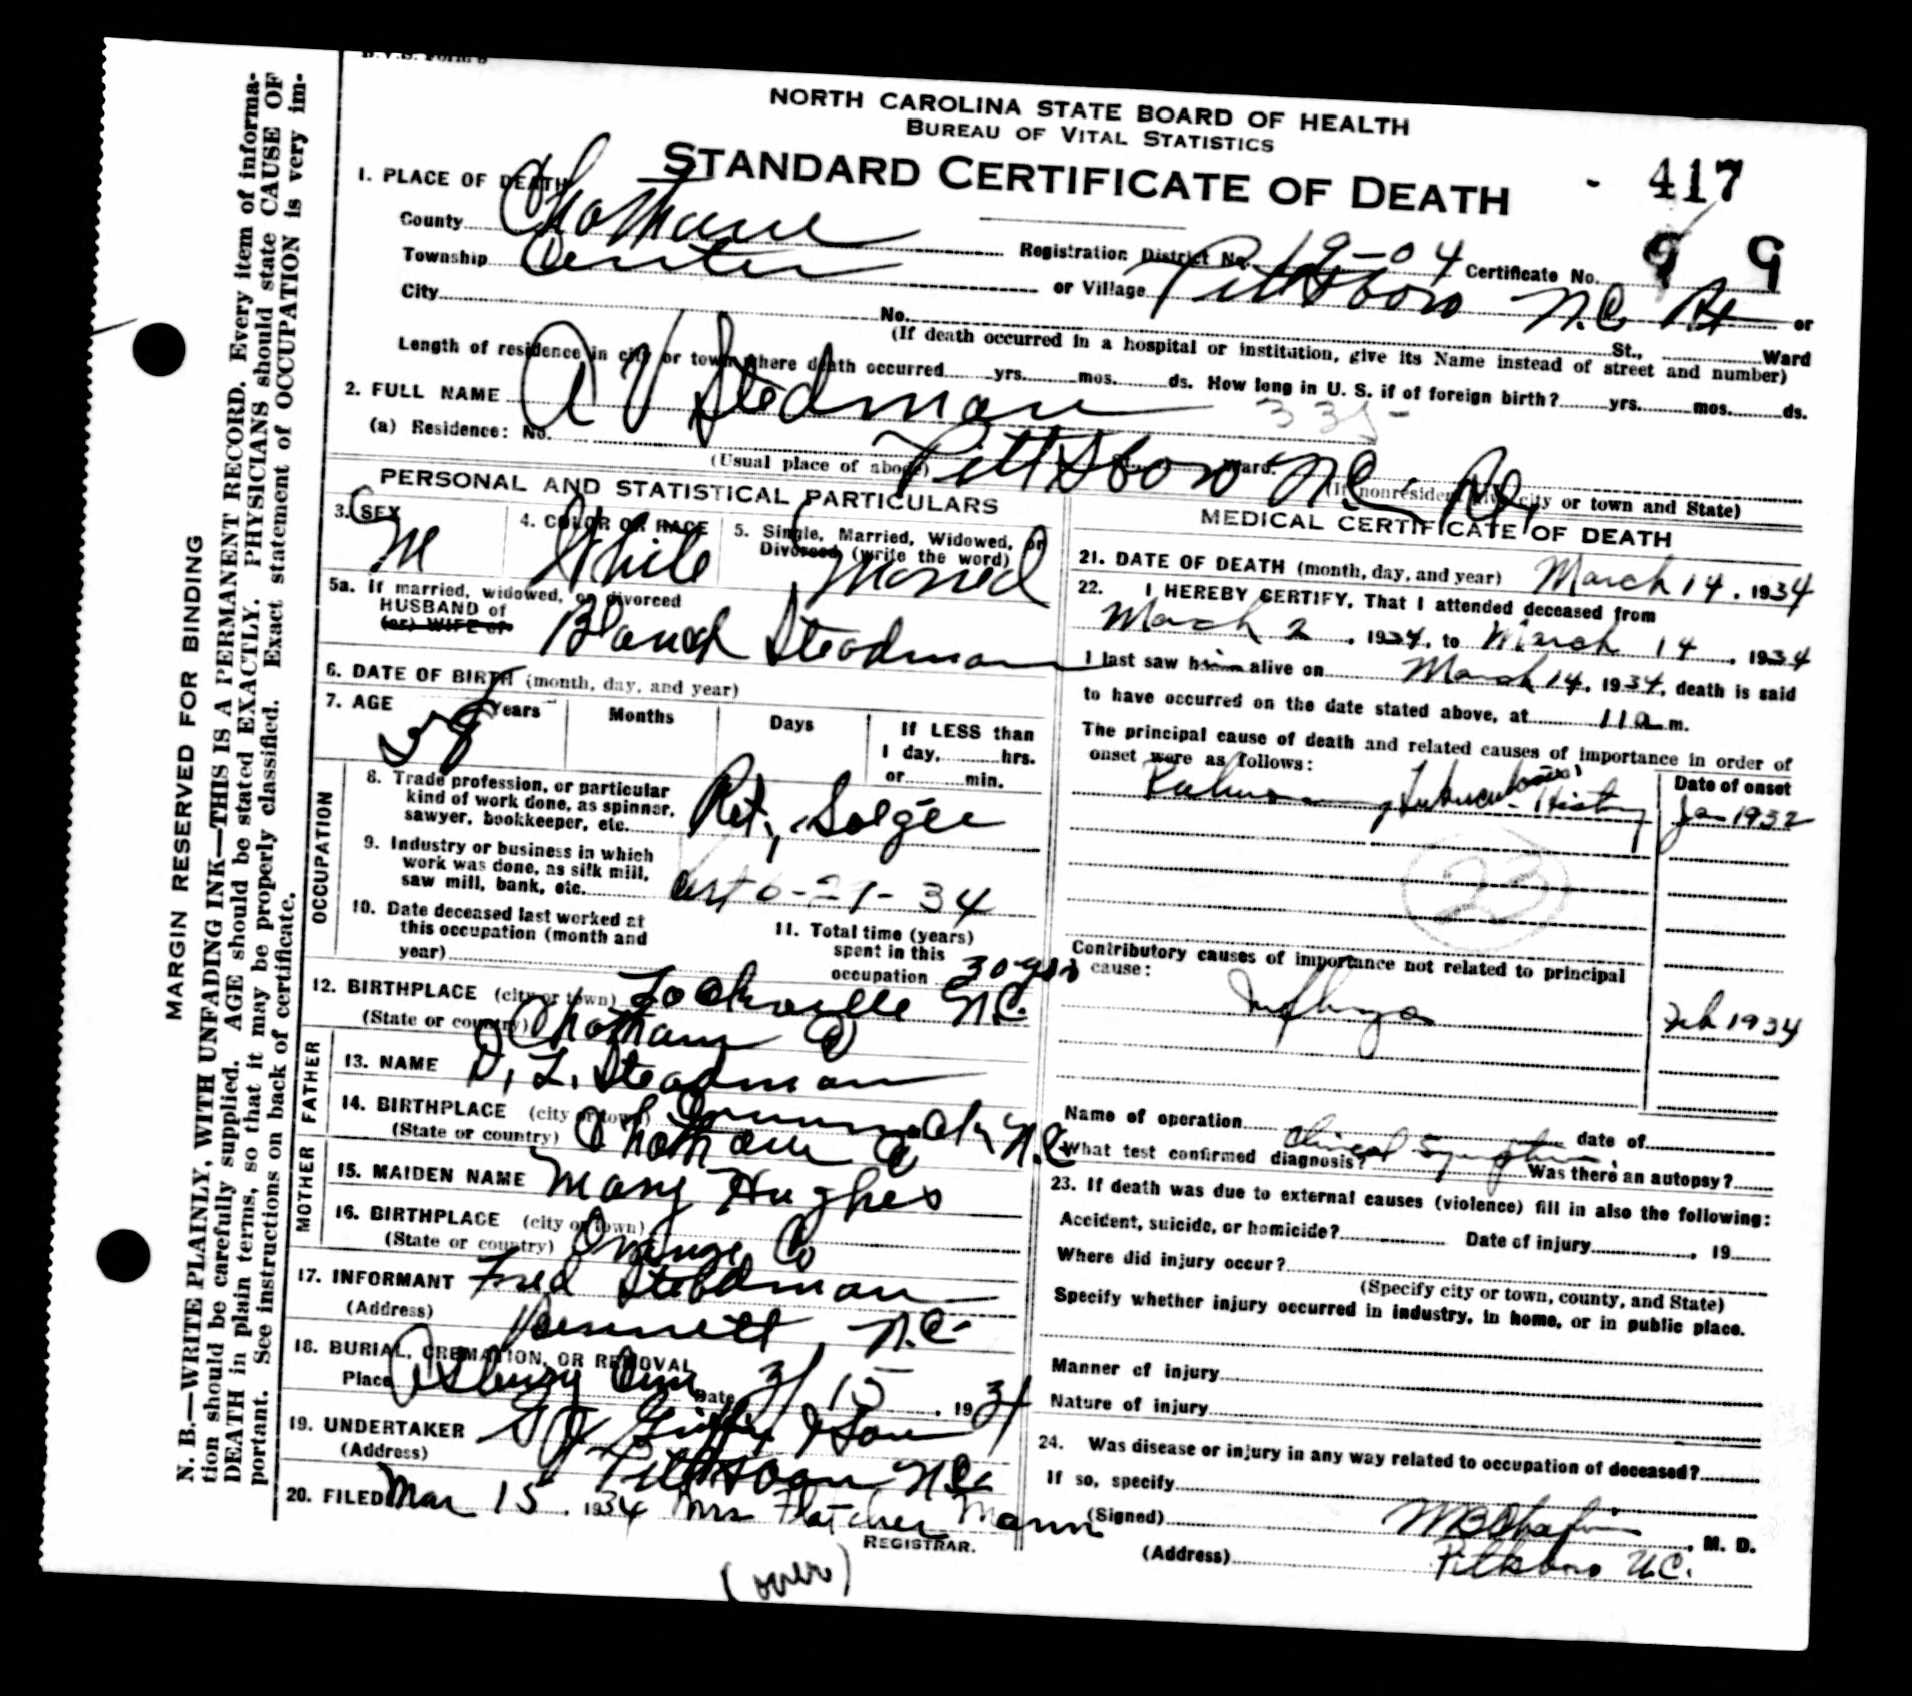 NORTH CAROLINA STATE BOARD OF HEALTH
BUREAU OF VITAL STATISTICS
STANDARD CERTIFICATE OF DEATH
- 417
1. PLACE OF DEATH
County Chatham Registration District No. 19-04 Certificate No. 9 9
Township Center or Village Pittsboro N.C. Rt or
City No. St., Ward
(If death occurred in a hospital or institution, give its Name instead of street and number)
Length of residence in city or town where death occurred yrs. mos. ds. How long in U. S. if of foreign birth? yrs. mos. ds.
2. FULL NAME A V Stedman 335
(a) Residence: No. Pittsboro Ward. N.C.
(Usual place of abode) (If nonresident give city or town and State)
PERSONAL AND STATISTICAL PARTICULARS
3. SEX
M
4. COLOR OR RACE
White
5. Single, Married, Widowed, or
Divorced (write the word)
Married
5a. If married, widowed, or divorced
HUSBAND of
(or) WIFE of
Blanch Steadman
6. DATE OF BIRTH (month, day, and year)
7. AGE Years Months Days If LESS than
1 day, hrs.
or min.
OCCUPATION
8. Trade profession, or particular
kind of work done, as spinner,
sawyer, bookkeeper, etc. Ret,
9. Industry or business in which
work was done, as silk mill,
saw mill, bank, etc. 34
10. Date deceased last worked at
this occupation (month and
year)
11. Total time (years)
spent in this
occupation 30 yrs
12. BIRTHPLACE (city or town) Lockville N.C.
(State or country) Chatham Co
FATHER
13. NAME D. L. Steadman
14. BIRTHPLACE (city or town) N.C.
(State or country) Chatham Co
MOTHER
15. MAIDEN NAME Mary Hughes
16. BIRTHPLACE (city or town)
(State or country) Orange Co
17. INFORMANT Fred Steadman
(Address) Bennett, N.C.
18. BURIAL, CREMATION, OR REMOVAL
Place Asbury Cem Date 3/15, 1934
19. UNDERTAKER & Son
(Address) Pittsboro N.C.
20. FILED Mar 15, 1934 Mrs Flatcher Mann
REGISTRAR.
(over)
MEDICAL CERTIFICATE OF DEATH
21. DATE OF DEATH (month, day, and year) March 14, 1934
22. I HEREBY CERTIFY, That I attended deceased from
March 2, 1934, to March 14, 1934
I last saw him alive on March 14, 1934, death is said
to have occurred on the date stated above, at 11 a m.
The principal cause of death and related causes of importance in order of
onset were as follows:
Date of onset
Pulmonary Tuberculosis - History Jan 1932
23
Contributory causes of importance not related to principal
cause:
Influenza Feb 1934
Name of operation date of
What test confirmed diagnosis? Clinical Symptoms Was there an autopsy?
23. If death was due to external causes (violence) fill in also the following:
Accident, suicide, or homicide? Date of injury , 19
Where did injury occur?
(Specify city or town, county, and State)
Specify whether injury occurred in industry, in home, or in public place.
Manner of injury
Nature of injury
24. Was disease or injury in any way related to occupation of deceased?
If so, specify
(Signed) , M. D.
(Address) Pittsboro N.C.
MARGIN RESERVED FOR BINDING
N. B.—WRITE PLAINLY, WITH UNFADING INK—THIS IS A PERMANENT RECORD. Every item of informa-
tion should be carefully supplied. AGE should be stated EXACTLY. PHYSICIANS should state CAUSE OF
DEATH in plain terms, so that it may be properly classified. Exact statement of OCCUPATION is very im-
portant. See instructions on back of certificate.